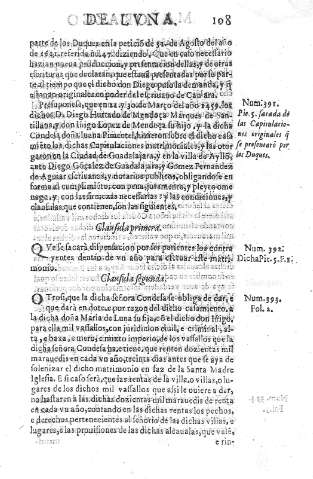 DE LUNA.
108
parte de los Duques en la peticiõ de 31. de Agosto de año
de 1642. referida nũ. 47. diziendo, Que en caso necessario
hazian nueua producion, y presentacion dellas, y de otras
escrituras que declaran, que estauã presentadas por su par-
te al tiempo que el dicho don Diego puso la demanda, y si
al presente originales en poder del escriuano de Camara.
Presuponese, que en 14. y 20. de Março del año 1459. los
dichos D. Diego Hurtado de Mendoça Marques de San-
tillana, y don Iñigo Lopez de Mendoça su hijo, y la dicha
Condesa doña Iuana Pimentel, hizierõ sobre el dicho casa
miẽto las dichas Capitulaciones matrimoniales, y las otor
garon en la Ciudad de Guadalajara, y en la villa de Aylló
ante Diego Gõçalez de Guadalajara, y Gomez Fernandez
de Aguiar escriuanos, y notarios publicos, obligandose en
forma al cumplimiẽto, con pena, juramento, y pleyto ome
nage, y con las firmeças necessarias y las condiciones, y
clausulas que contienen, son las siguientes.
Num. 391.
Pie. 5. sacada de
las Capitulacio-
nes originales q̃
se presentarõ por
los Duques.
Clausula primera.
QVe se sacarà dispensacion por ser parientes los contra
yentes dentro de vn año para efetuar este matri-
monio.
Num. 392.
Dicha Pie. 5. F. 2.
Clausula segunda.
OTrosi, que la dicha señora Condesa se obliga de dar, e
que darà en dote, e por razon del dicho casamiento, a
la dicha doña Maria de Luna su fija, e cõ el dicho don Iñigo,
para ella mil vassallos, con juridicion civil, e criminal, al-
ta, y baxa, e mero, e mixto imperio, de los vassallos que la
dicha señora Condesa ha, e tiene, que renten dozientas mil
marauedis en cada vn año, treinta dias antes que se aya de
solenizar el dicho matrimonio en faz de la Santa Madre
Iglesia. E si caso serà, que las rentas de la villa, o villas, o lu-
gares de los dichos mil vassallos que assi le ouiere a dar,
no bastaren a las dichas dozientas mil marauedis de renta
en cada vn año, contando en las dichas rentas los pechos,
e derechos pertenecientes al señorio de las dichas villas, e
lugares, e las prouisiones de las dichas alcaualas, que valẽ,
Num. 393.
Fol. 2.
e rin-